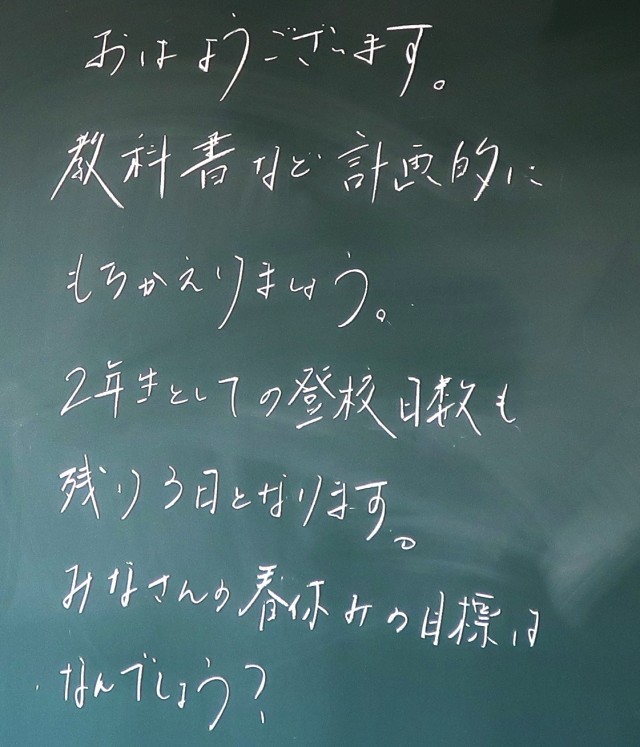 おはようございます。
教科書など計画的に
もちかえりましょう。
2年生としての登校日数も
残り3日となります。
みなさんの春休みの目標は
なんでしょう?